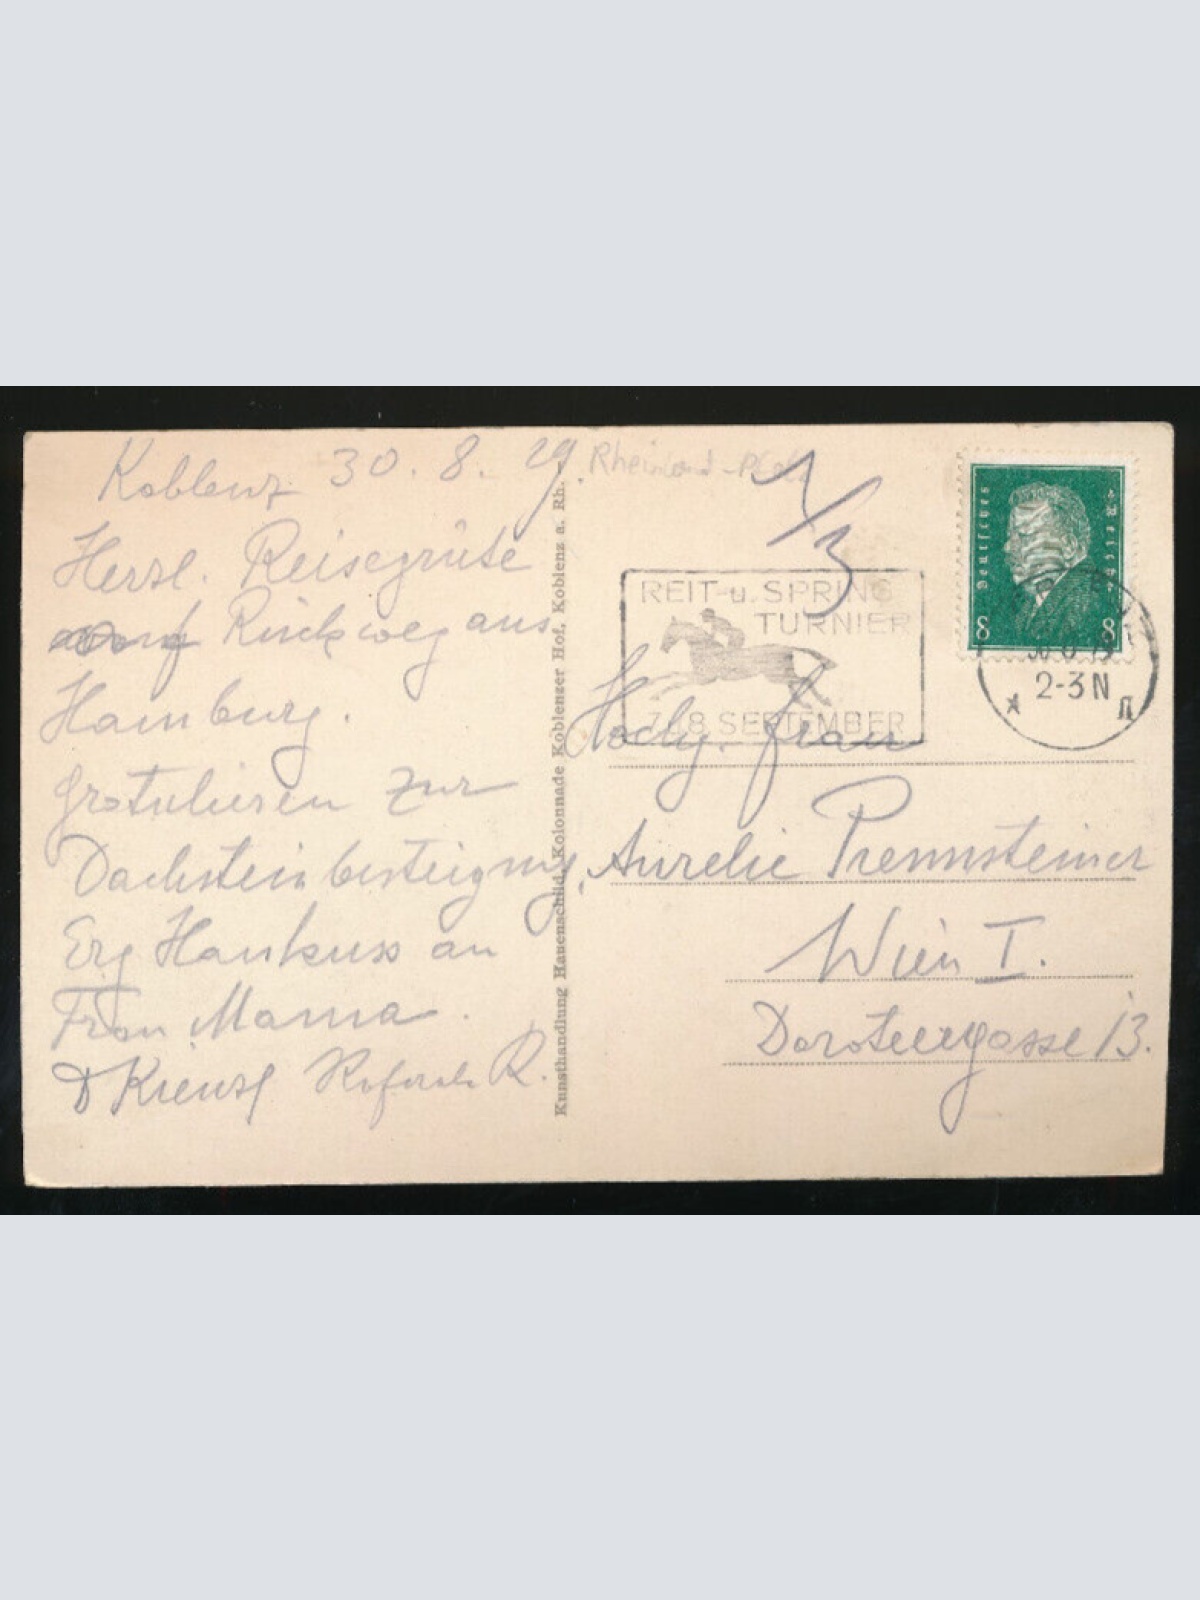 Koblenz 30. 8. 29.
Herzl. Reisegrüße
Rückweg aus
Hamburg.
Gratulieren zur
Dachsteinbesteigung,
Erg Hankuss an
Frau Mama.
Kienzl
R.
Kunsthandlung Hauenschild, Kolonnade Koblenzer Hof, Koblenz a. Rh.
Rheinland-Pfalz
1/3
REIT- u. SPRING
TURNIER
7. u. 8 SEPTEMBER
Deutsches Reich
8 8
2-3 N
Hochg. Frau
Aurelie Prennsteiner
Wien I.
Doroteergasse 13.